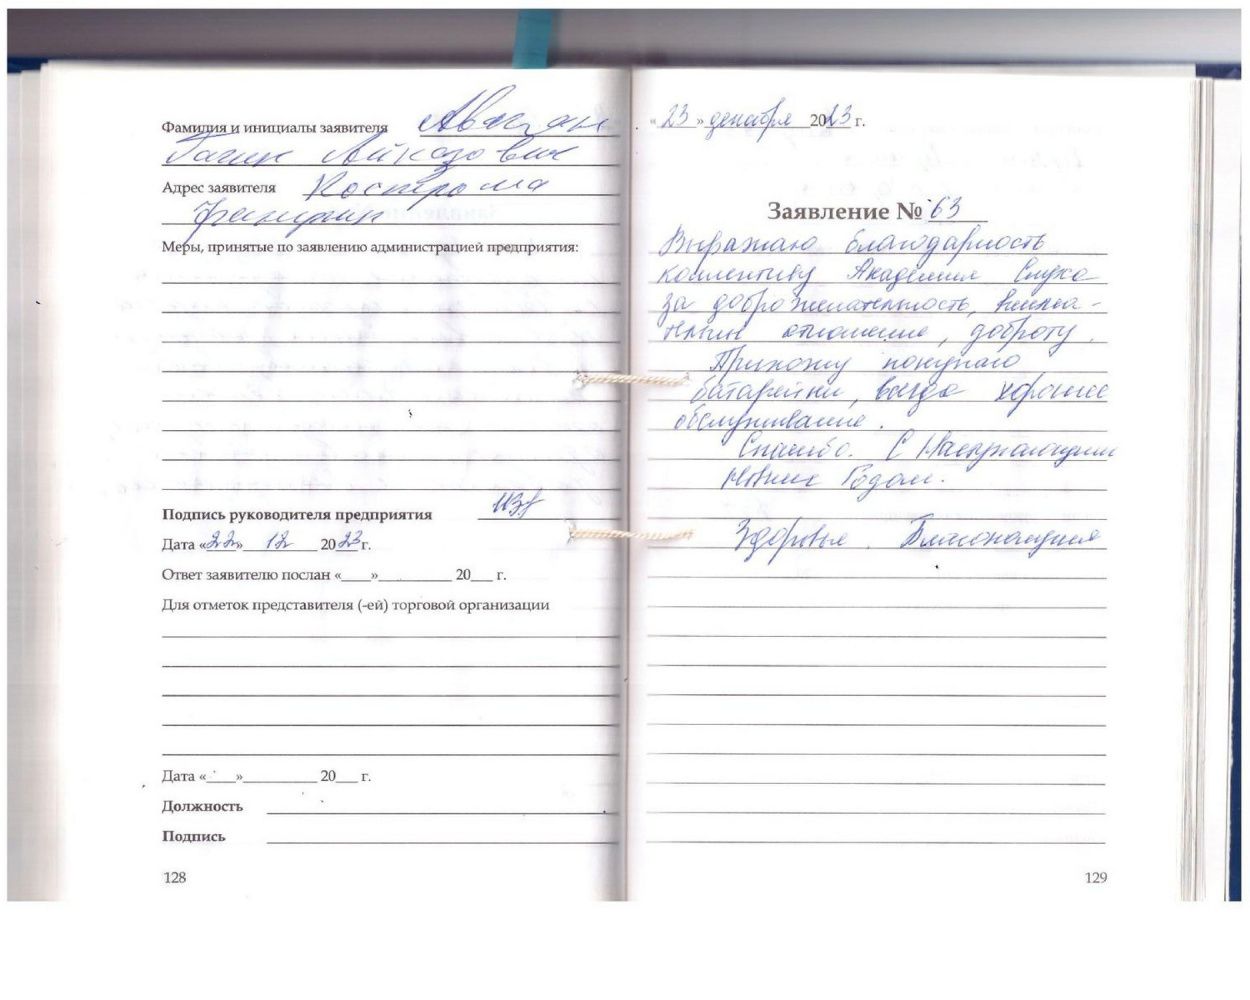 Фамилия и инициалы заявителя
Айказович
Адрес заявителя Кострома
Меры, принятые по заявлению администрацией предприятия:
Подпись руководителя предприятия
Дата «22» 12 2023 г.
Ответ заявителю послан «____»__________ 20___ г.
Для отметок представителя (-ей) торговой организации
Дата «____»__________ 20___ г.
Должность
Подпись
128
«23» декабря 2023 г.
Заявление № 63
Выражаю благодарность
коллективу Академия Слуха
за доброжелательность, внима-
тельное отношение, доброту.
Прихожу покупаю
батарейки, всегда хорошее
обслуживание.
Спасибо. С Наступающим
Новым Годом.
Здоровья. Благополучия
129